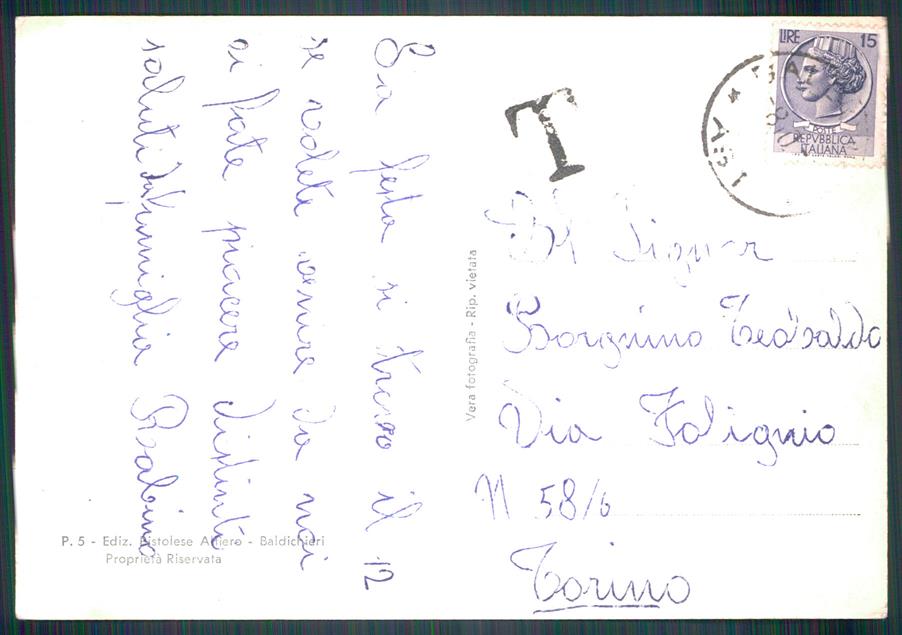 La festa si trova il 12
se volete venire da noi
ci fate piacere distinti
saluti famiglia Rabino
P. 5 - Ediz. Pistolese Alfiero - Baldichieri
Proprietà Riservata
Vera fotografia - Rip. vietata
T
LIRE 15
POSTE
REPVBBLICA
ITALIANA
Al Signor
Borgnino Teobaldo
Via Folignio
N 58/6
Torino